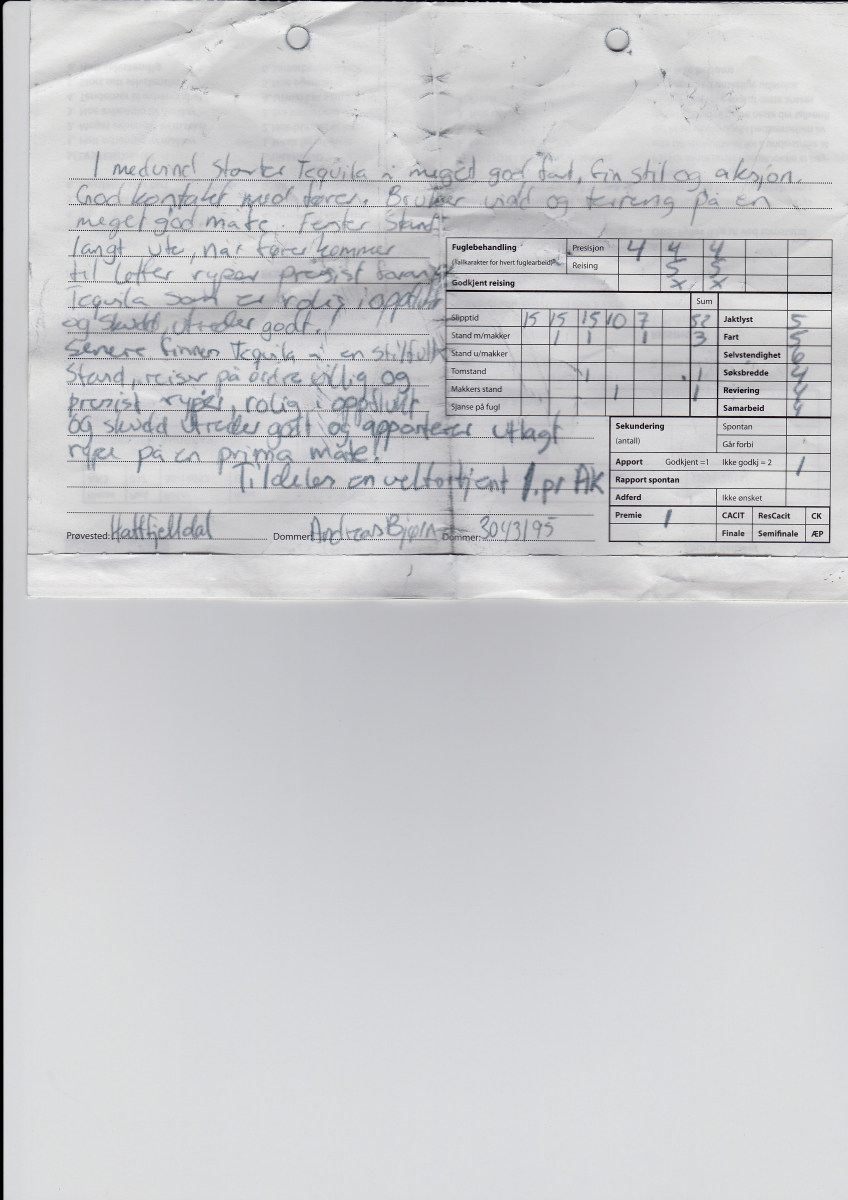 I medvind starter Tequila i meget god fart, fin stil og aksjon.
God kontakt med fører. Bruker vidd og terreng på en
meget god måte. Fester stand
langt ute, når fører kommer
til letter ryper presist foran
Tequila som er rolig i oppflukt
og skudd, utreder godt.
Senere finner Tequila i en stilfull
Stand, reiser på ordre villig og
presist ryper, rolig i oppflukt
og skudd utreder gott og apporterer utlagt
rype på en prima måte!
Tildeles en velfortjent 1.pr AK
Prøvested: Hattfjelldal Dommer: Andreas Bjørn Dommer: 30/3/95
Fuglebehandling
(Tallkarakter for hvert fuglearbeid)
Presisjon 4 4 4
Reising 5 5
Godkjent reising x x
Sum
Slipptid 15 15 15 10 7 52
Stand m/makker 1 1 1 3
Stand u/makker
Tomstand 1 1
Makkers stand 1 1
Sjanse på fugl
Jaktlyst 5
Fart 5
Selvstendighet 6
Søksbredde 4
Reviering 4
Samarbeid 4
Sekundering (antall) Spontan
Går forbi
Apport Godkjent =1 Ikke godkj = 2 1
Rapport spontan
Adferd Ikke ønsket
Premie 1 CACIT ResCacit CK
Finale Semifinale ÆP